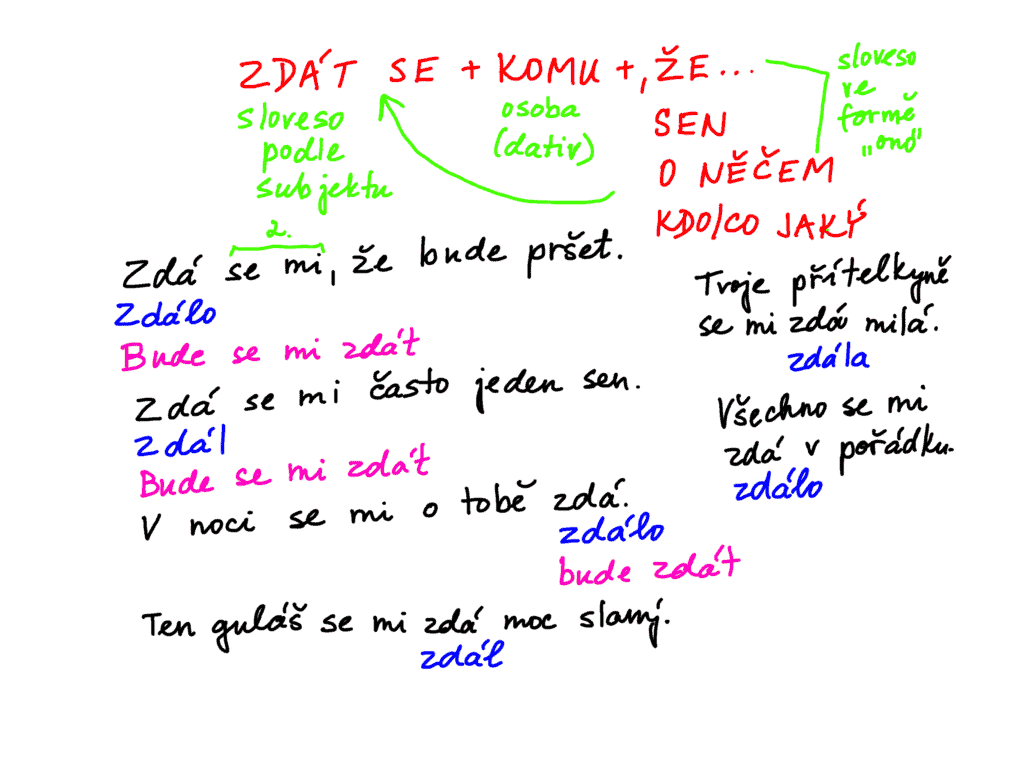 ZDÁT SE + KOMU +, ŽE...
SEN
O NĚČEM
KDO/CO JAKÝ
sloveso
podle
subjektu
osoba
(dativ)
sloveso
ve
formě
„ono"
2.
Zdá se mi, že bude pršet.
Zdálo
Bude se mi zdát
Zdá se mi často jeden sen.
Zdál
Bude se mi zdát
V noci se mi o tobě zdá.
zdálo
bude zdát
Ten guláš se mi zdá moc slaný.
zdál
Tvoje přítelkyně
se mi zdá milá.
zdála
Všechno se mi
zdá v pořádku.
zdálo